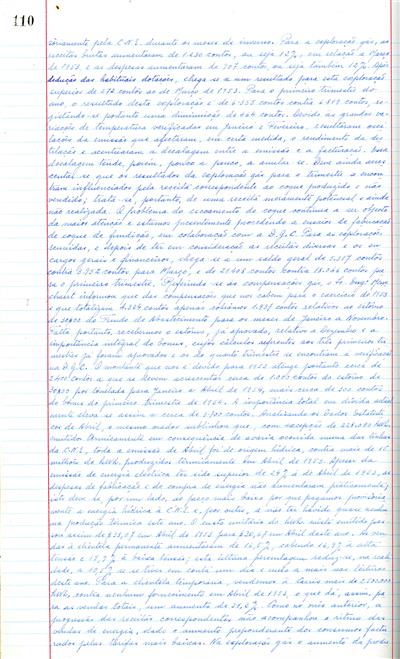 110
sòriamente pela C.N.E. durante os meses de inverno. Para a exploração gás, as
receitas brutas aumentaram de 1.630 contos, ou seja 12%, em relação a Março
de 1953 e as despesas aumentaram de 707 contos, ou seja também 12%. Após
dedução das habituais dotações, chega-se a um resultado para esta exploração
superior de 272 contos ao de Março de 1953. Para o primeiro trimestre do
ano, o resultado desta exploração é de 6.355 contos contra 6.819 contos, re-
gistando-se portanto uma diminuição de 464 contos. Devido às grandes va-
riações de temperatura verificadas em Janeiro e Fevereiro, resultaram osci-
lações da emissão que afectaram, em certa medida, o rendimento da des-
tilação e acentuaram a decalagem entre a emissão e a facturação. Essa
decalagem tende, porém, pouco a pouco, a anular-se. Deve ainda acres-
centar-se que os resultados da exploração gás para o trimestre se encon-
tram influenciados pela receita correspondente ao coque produzido e não
vendido; trata-se, portanto, de uma receita meramente potencial e ainda
não realizada. O problema do escoamento de coque continua a ser objecto
da maior atenção e estamos presentemente procedendo a ensaios de fabricação
de coque de fundição, em colaboração com a D.G.C. Para as explorações
reunidas, e depois de ter em consideração as receitas diversas e os en-
cargos gerais e financeiros, chega-se a um saldo geral de 5.557 contos
contra 3.952 contos para Março, e de 21.408 contos contra 18.064 contos pa-
ra o primeiro trimestre. Referindo-se às compensações que, o Sr. Eng.
informou que das compensações que nos cabem para o exercício de 1953
e que totalizam 4.269 contos apenas cobrámos 3.937 contos relativos ao estorno
de 30$00 do Fundo de Abastecimento para os meses de Janeiro a Novembro.
Falta portanto, recebermos o estorno, já aprovado, relativo a Dezembro e a
importância integral do bonus, cujos cálculos referentes aos três primeiros tri-
mestres já foram aprovados e os do quarto trimestre se encontram a verificar
na D.G.C. O montante que nos é devido para 1953 atinge portanto cerca de
2.400 contos a que se devem acrescentar cerca de 1.000 contos do estorno de
30$00 por tonelada para Janeiro a Abril de 1954, mais cerca de 500 contos
de bonus do primeiro trimestre de 1954. A importância total em dívida actual-
mente eleva-se assim a cerca de 3.900 contos. Analisando os Dados Estatísti-
cos de Abril, o mesmo orador sublinhou que, com excepção de 228.000 kWh
emitidos termicamente em consequência de avaria ocorrida numa das linhas
da C.N.E., toda a emissão de Abril foi de origem hídrica, contra mais de 15
milhões de kWh, produzidos termicamente em Abril de 1953. Apesar da
emissão de energia eléctrica ter sido superior de 24% à de Abril de 1953, as
despesas de fabricação e de compra de energia não aumentaram praticamente;
isto deve-se, por um lado, ao preço mais baixo por que pagamos provisòria-
mente a energia hídrica à C.N.E. e, por outro, a não ter havido quase nenhu-
ma produção térmica este ano. O custo unitário do kWh neste emitido pas-
sou assim de $25,07 em Abril de 1953 para $20,67 em Abril deste ano. As ven-
das à clientela permanente aumentaram de 16,7%, cabendo 16,9% à alta
tensão e 15,7% à baixa tensão; esta última percentagem reduz-se, na reali-
dade, a 10,5% se se tiver em conta um dia e meio a mais nas leituras
deste ano. Para a clientela temporária, vendemos à tarifa mais de 2.500.000
kWh, contra nenhum fornecimento em Abril de 1953, o que dá, assim, pa-
ra as vendas totais, um aumento de 25,6%. Como no mês anterior, a
progressão das receitas correspondentes não acompanha o ritmo das
vendas de energia, dado o aumento preponderante dos consumos factu-
rados pelas tarifas mais baixas. Na exploração gás o aumento da produ-